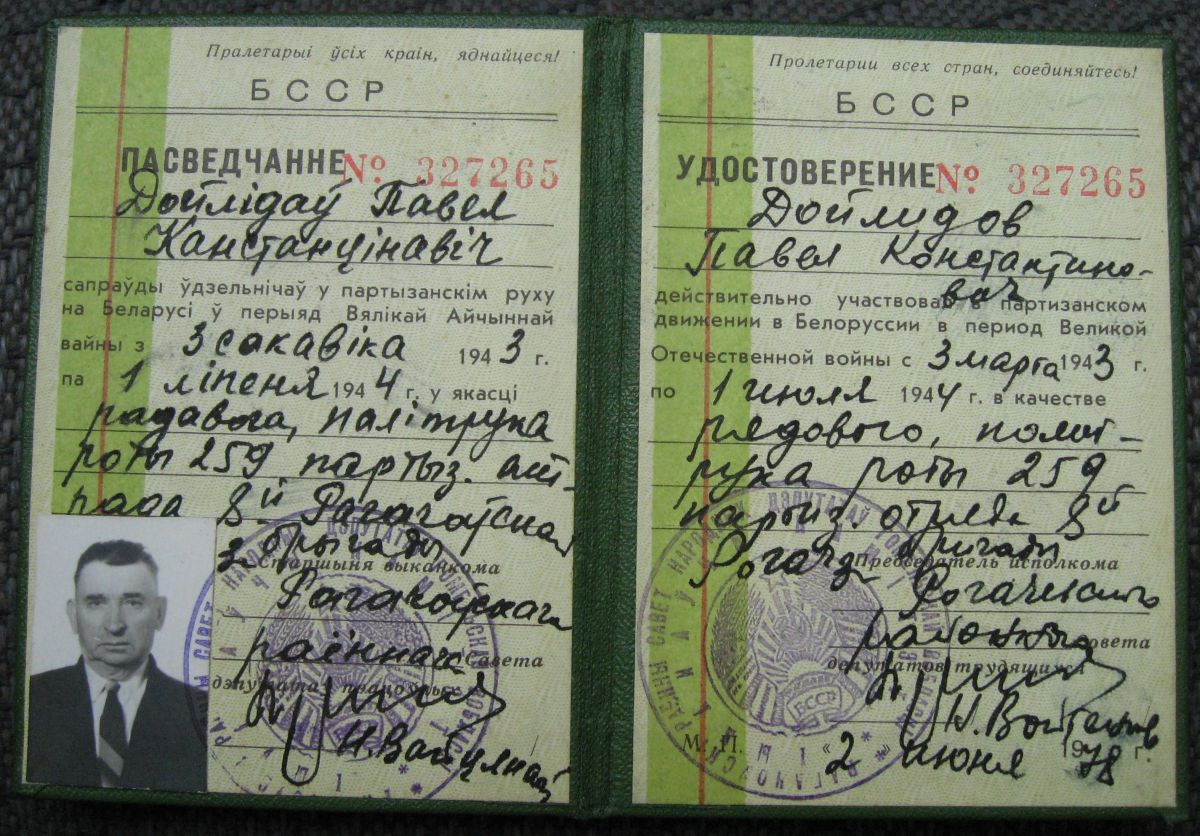 Пралетарыі ўсіх краін, яднайцеся!
БССР
ПАСВЕДЧАННЕ № 327265
Дойлідаў Павел
Канстанцінавіч
сапраўды ўдзельнічаў у партызанскім руху
на Беларусі ў перыяд Вялікай Айчыннай
вайны з 3 сакавіка 1943 г.
па 1 ліпеня 1944 г. у якасці
радавога, палітрука
роты 259 партыз. ат-
рада 8й Рагачоўскай
брыгады
Старшыня выканкома
Рагачоўскага
раённага Савета
дэпутатаў працоўных
Пролетарии всех стран, соединяйтесь!
БССР
УДОСТОВЕРЕНИЕ № 327265
Дойлидов
Павел Константино-
вич
действительно участвовал в партизанском
движении в Белоруссии в период Великой
Отечественной войны с 3 марта 1943 г.
по 1 июля 1944 г. в качестве
рядового, полит-
рука роты 259
партиз. отряда 8й
Рогач. бригады
Председатель исполкома
Рогачевского
районного Совета
депутатов трудящихся
М. П. «2» июня 1978 г.
БССР